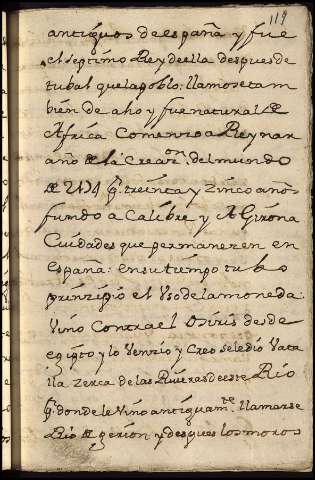 119
antiguos de españa y fue
el septimo Rey de ella despues de
tubal que la poblo: llamose tam
bien de aho y fue natural de
Africa Comenzo a Reynar
año de la Creaon. del mundo
de 2174 y treinta y zinco años
fundo a Calibre y A Girona
Ciudades que permanezen en
españa: en su tiempo tubo
prinzipio el Uso de la moneda:
Vino Contra el Osiris desde
egipto y lo Venzio y Creo se le dio Vata
lla zerca de las Riveras de este Rio
donde le Vino antiguamte. llamarse
Rio de gerion y despues los moros